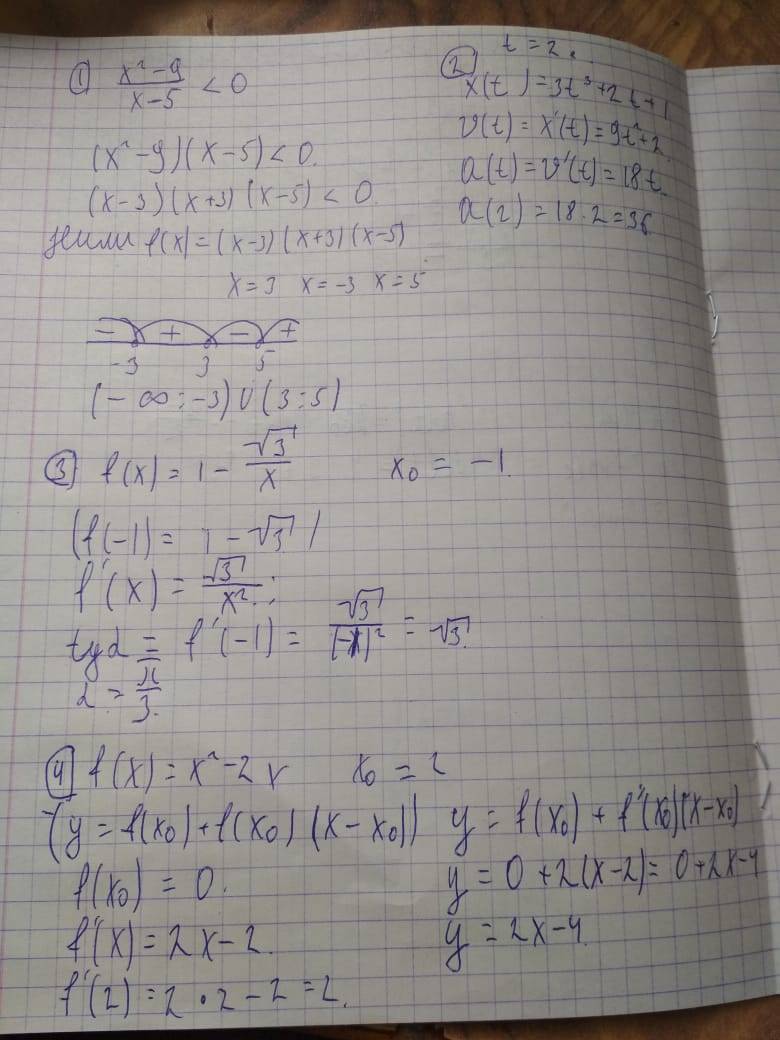 ① x²-9/x-5 < 0
(x²-9)(x-5)<0.
(x-3)(x+3)(x-5)<0
f(x)=(x-3)(x+3)(x-5)
x=3 x=-3 x=5
- + - +
-3 3 5
(-∞;-3)∪(3;5)
② t=2.
x(t)=3t³+2t+1
v(t)=x'(t)=9t²+2.
a(t)=v'(t)=18t.
a(2)=18·2=36
③ f(x)=1-√3/x x₀=-1.
(f(-1)=1-√3)
f'(x)=√3/x²;
tgα=f'(-1)=√3/(-1)²=√3.
α=π/3.
④ f(x)=x²-2x x₀=2
(y=f(x₀)+f(x₀)(x-x₀))
f(x₀)=0.
f'(x)=2x-2.
f'(2)=2·2-2=2.
y=f(x₀)+f'(x₀)(x-x₀)
y=0+2(x-2)=0+2x-4
y=2x-4.